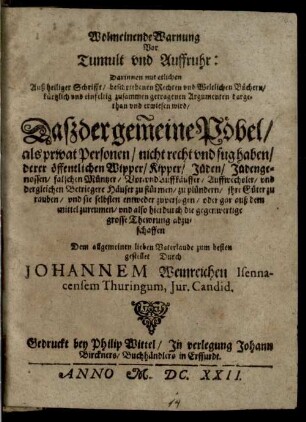 Wolmeinende Warnung
Vor
Tumult vnd Auffruhr:
Darinnen mit etlichen
Auß heiliger Schrifft / beschriebenen Rechten vnd Weltlichen Büchern /
kürtzlich vnd einfeltig zusammen getragenen Argumenten darge-
than vnd erwiesen wird /
Daß der gemeine Pöbel /
als privat Personen / nicht recht vnd fug haben /
derer öffentlichen Wipper / Kipper / Jüden / Jüdenge-
nossen / falschen Müntzer / Vor vnd Auffkäuffer / Auffwechsler / vnd
dergleichen Betrieger Häuser zu stürmen / zu plündern / ihre Güter zu
rauben / vnd sie selbsten entweder zuverjagen / oder gar auß dem
mittel zureumen / vnd also hierdurch die gegenwertige
grosse Thewrung abzu-
schaffen
Dem allgemeinen lieben Vaterlande zum besten
gestellet Durch
JOHANNEM Weinreichen Isenna-
censem Thuringum, Jur. Candid.
Gedruckt bey Philip Wittel / In verlegung Johann
Birckners / Buchhändlers in Erffurdt.
ANNO M. DC. XXII.
14